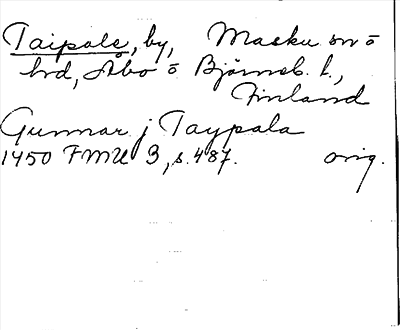 Taipale, by, Masku sn o
hd, Åbo o Björneb. l.,
Finland
Gunnar j Taypala
1450 FMU 3, s. 487. orig.